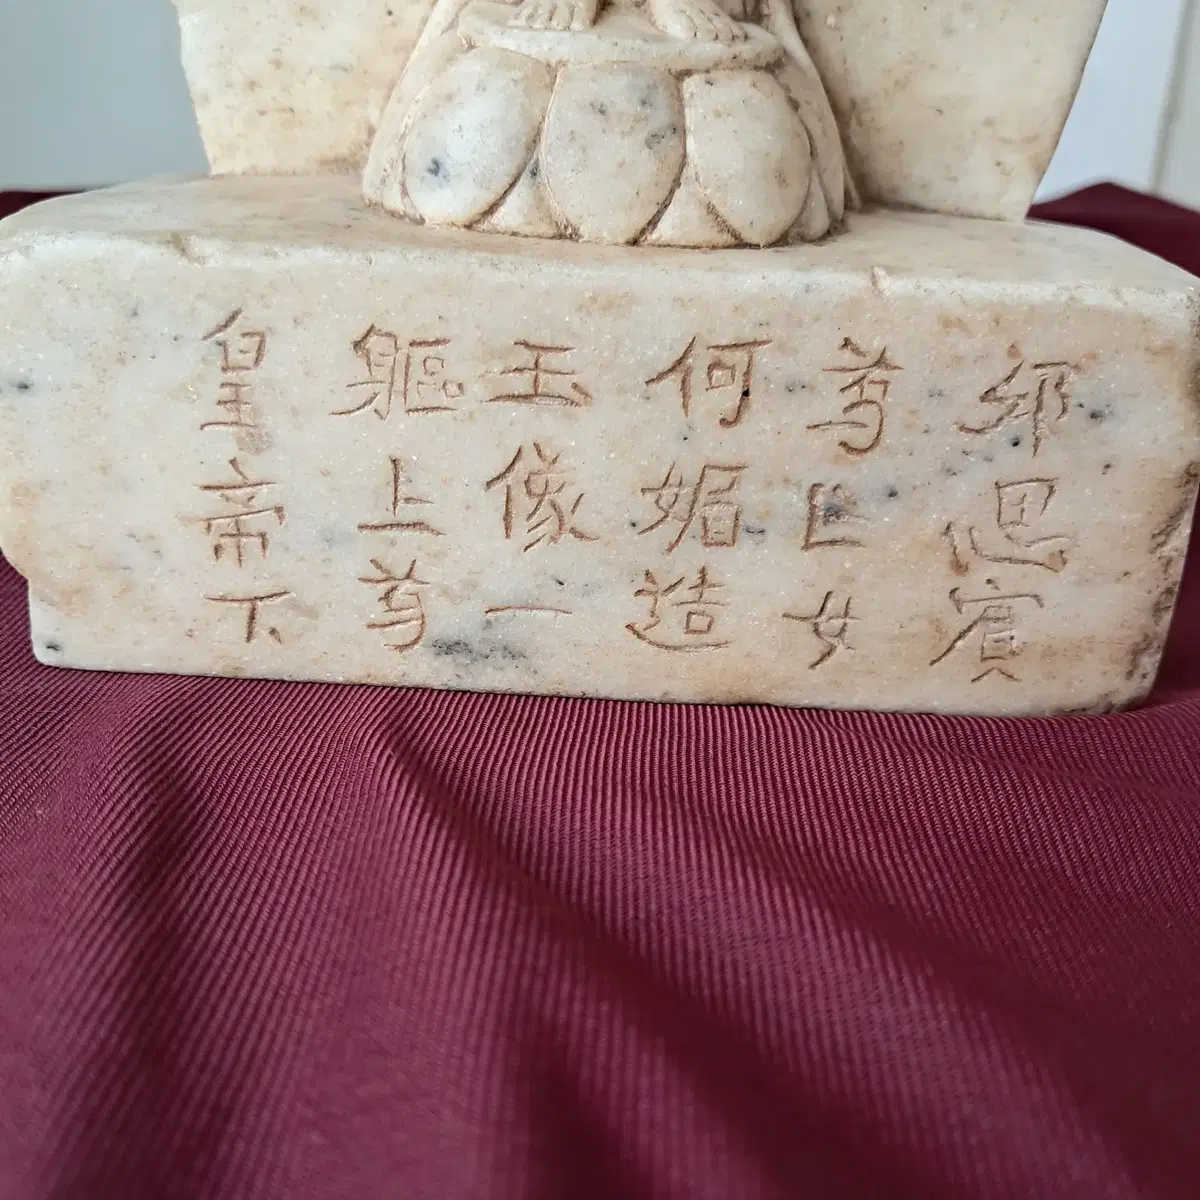 邧思賓
為亡女
何媚造
玉像一
軀上為
皇帝下